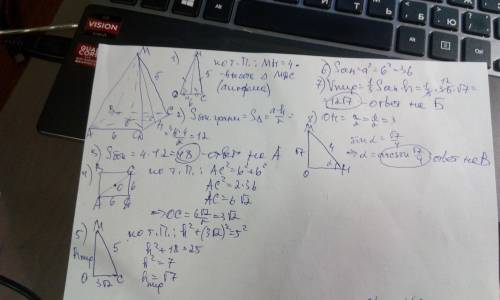 VISION
M
5
A
6
D
C
H
1)
M
5
D
6
C
по т.П.: MH = 4 -
высота Δ MDC
(апофема)
2) Sбок.грани = SΔ = a·h/2 =
= 6·4/2 = 12
3) Sбок = 4·12 = 48 - ответ на А
4) B
C
6
A
6
D
по т.П.: AC² = 6² + 6²
AC² = 2·36
AC = 6√2
⇒ OC = 6√2/2 = 3√2
5) M
5
hпир
O
3√2
C
по т.П.: h² + (3√2)² = 5²
h² + 18 = 25
h² = 7
hпир = √7
6) Sосн = a² = 6² = 36
7) Vпир = 1/3 Sосн·h = 1/3·36·√7 =
12√7 - ответ на Б
8) OH = a/2 = 6/2 = 3
M
√7
4
α
O
H
sin α = √7/4
⇒ α = arcsin √7/4 ответ на В